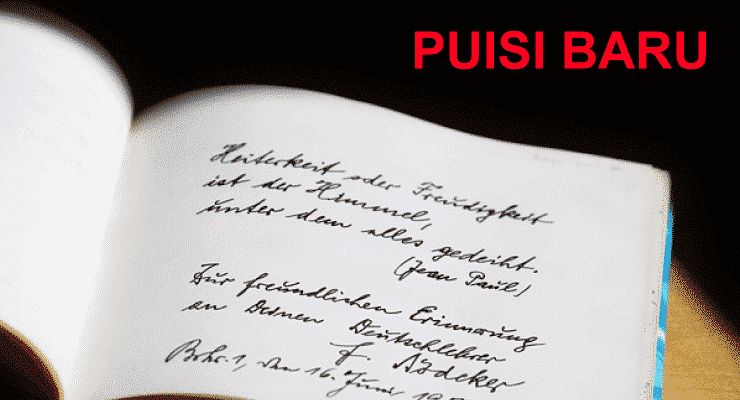 PUISI BARU
Heiterkeit oder Freudigkeit
ist der Himmel,
unter dem alles gedeiht.
(Jean Paul)
Zur freundlichen Erinnerung
an Deinen Deutschlehrer
F. Rödeker
den 16. Juni